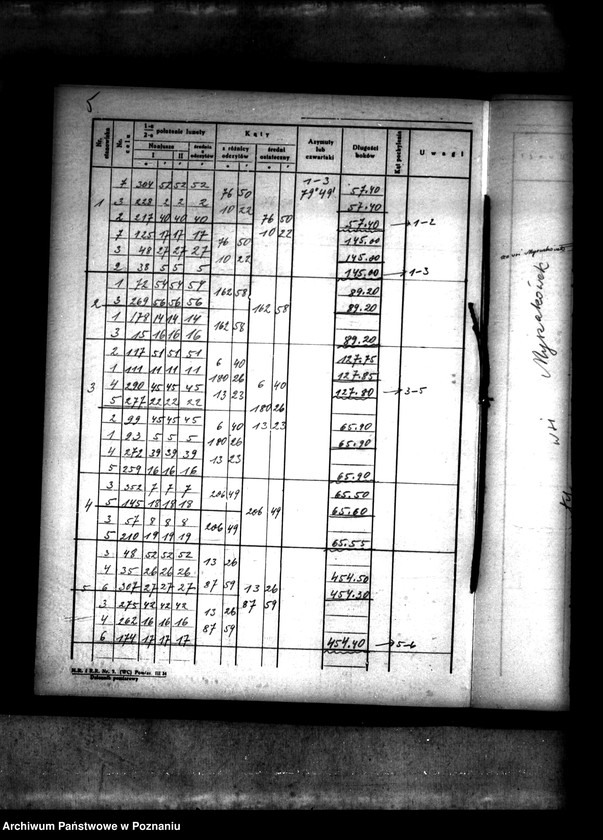 5
Nr. stanowiska | Nr. celu | 1-e 2-e położenie lunety | Kąty | Azymuty lub czwartaki | Długości boków | Kąt pochylenia | Uwagi
Nonjusze | średnia z odczytów | z różnicy odczytów | średni ostateczny
I | II
7 304 52 52 52 1-3
1 3 228 2 2 2 76 50 79° 49' 57.40
2 217 40 40 40 10 22 57.40
7 125 17 17 17 76 50 57.40 → 1-2
3 48 27 27 27 76 50 10 22 145.00
2 38 5 5 5 10 22 145.00
145.00 → 1-3
1 72 54 54 54 162 58 89.20
2 3 269 56 56 56 162 58 89.20
1 178 14 14 14 162 58
3 15 16 16 16 89.20
2 117 51 51 51 6 40 127.75
1 111 11 11 11 180 26 127.85
3 4 290 45 45 45 13 23 6 40 127.80 → 3-5
5 277 22 22 22 180 26
2 99 45 45 45 6 40 13 23 65.90
1 93 5 5 5 180 26 65.90
4 272 39 39 39 13 23
5 259 16 16 16 65.90
3 352 7 7 7 206 49 65.50
4 5 145 18 18 18 206 49 65.60
3 57 8 8 8 206 49
5 210 19 19 19 65.55
3 48 52 52 52 13 26
4 35 26 26 26 454.50
5 6 307 27 27 27 87 59 13 26 454.30
3 275 42 42 42 13 26 87 59
4 262 16 16 16 87 59
6 174 17 17 17 454.40 → 5-6
Dziennik pomiarowy
wsi Myszaków
Archiwum Państwowe w Poznaniu